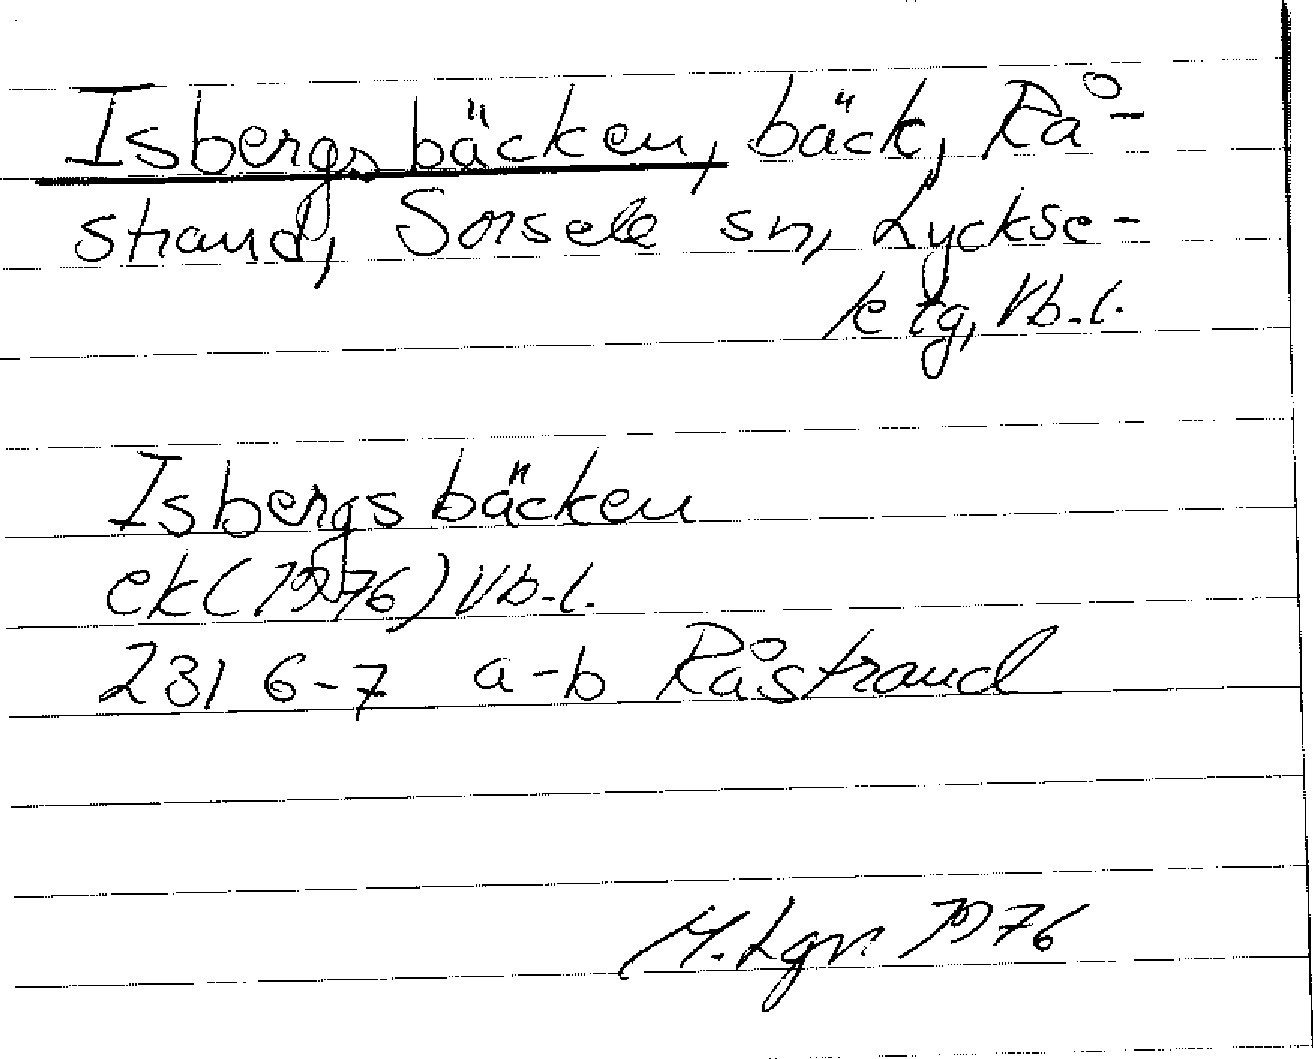 Isbergsbäcken, bäck, Rå-
strand, Sorsele sn, Lyckse-
le tg, Vb. l.
Isbergsbäcken
ek (1976) Vb. l.
231 6-7 a-b Råstrand
M. Lgn 1976